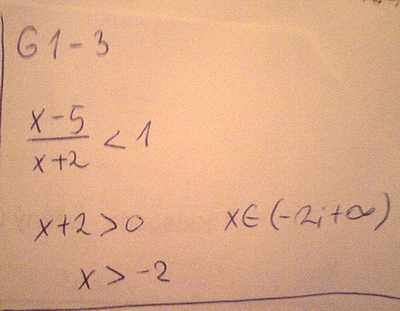 G 1-3
x-5/x+2 < 1
x+2>0 x∈(-2;+∞)
x>-2